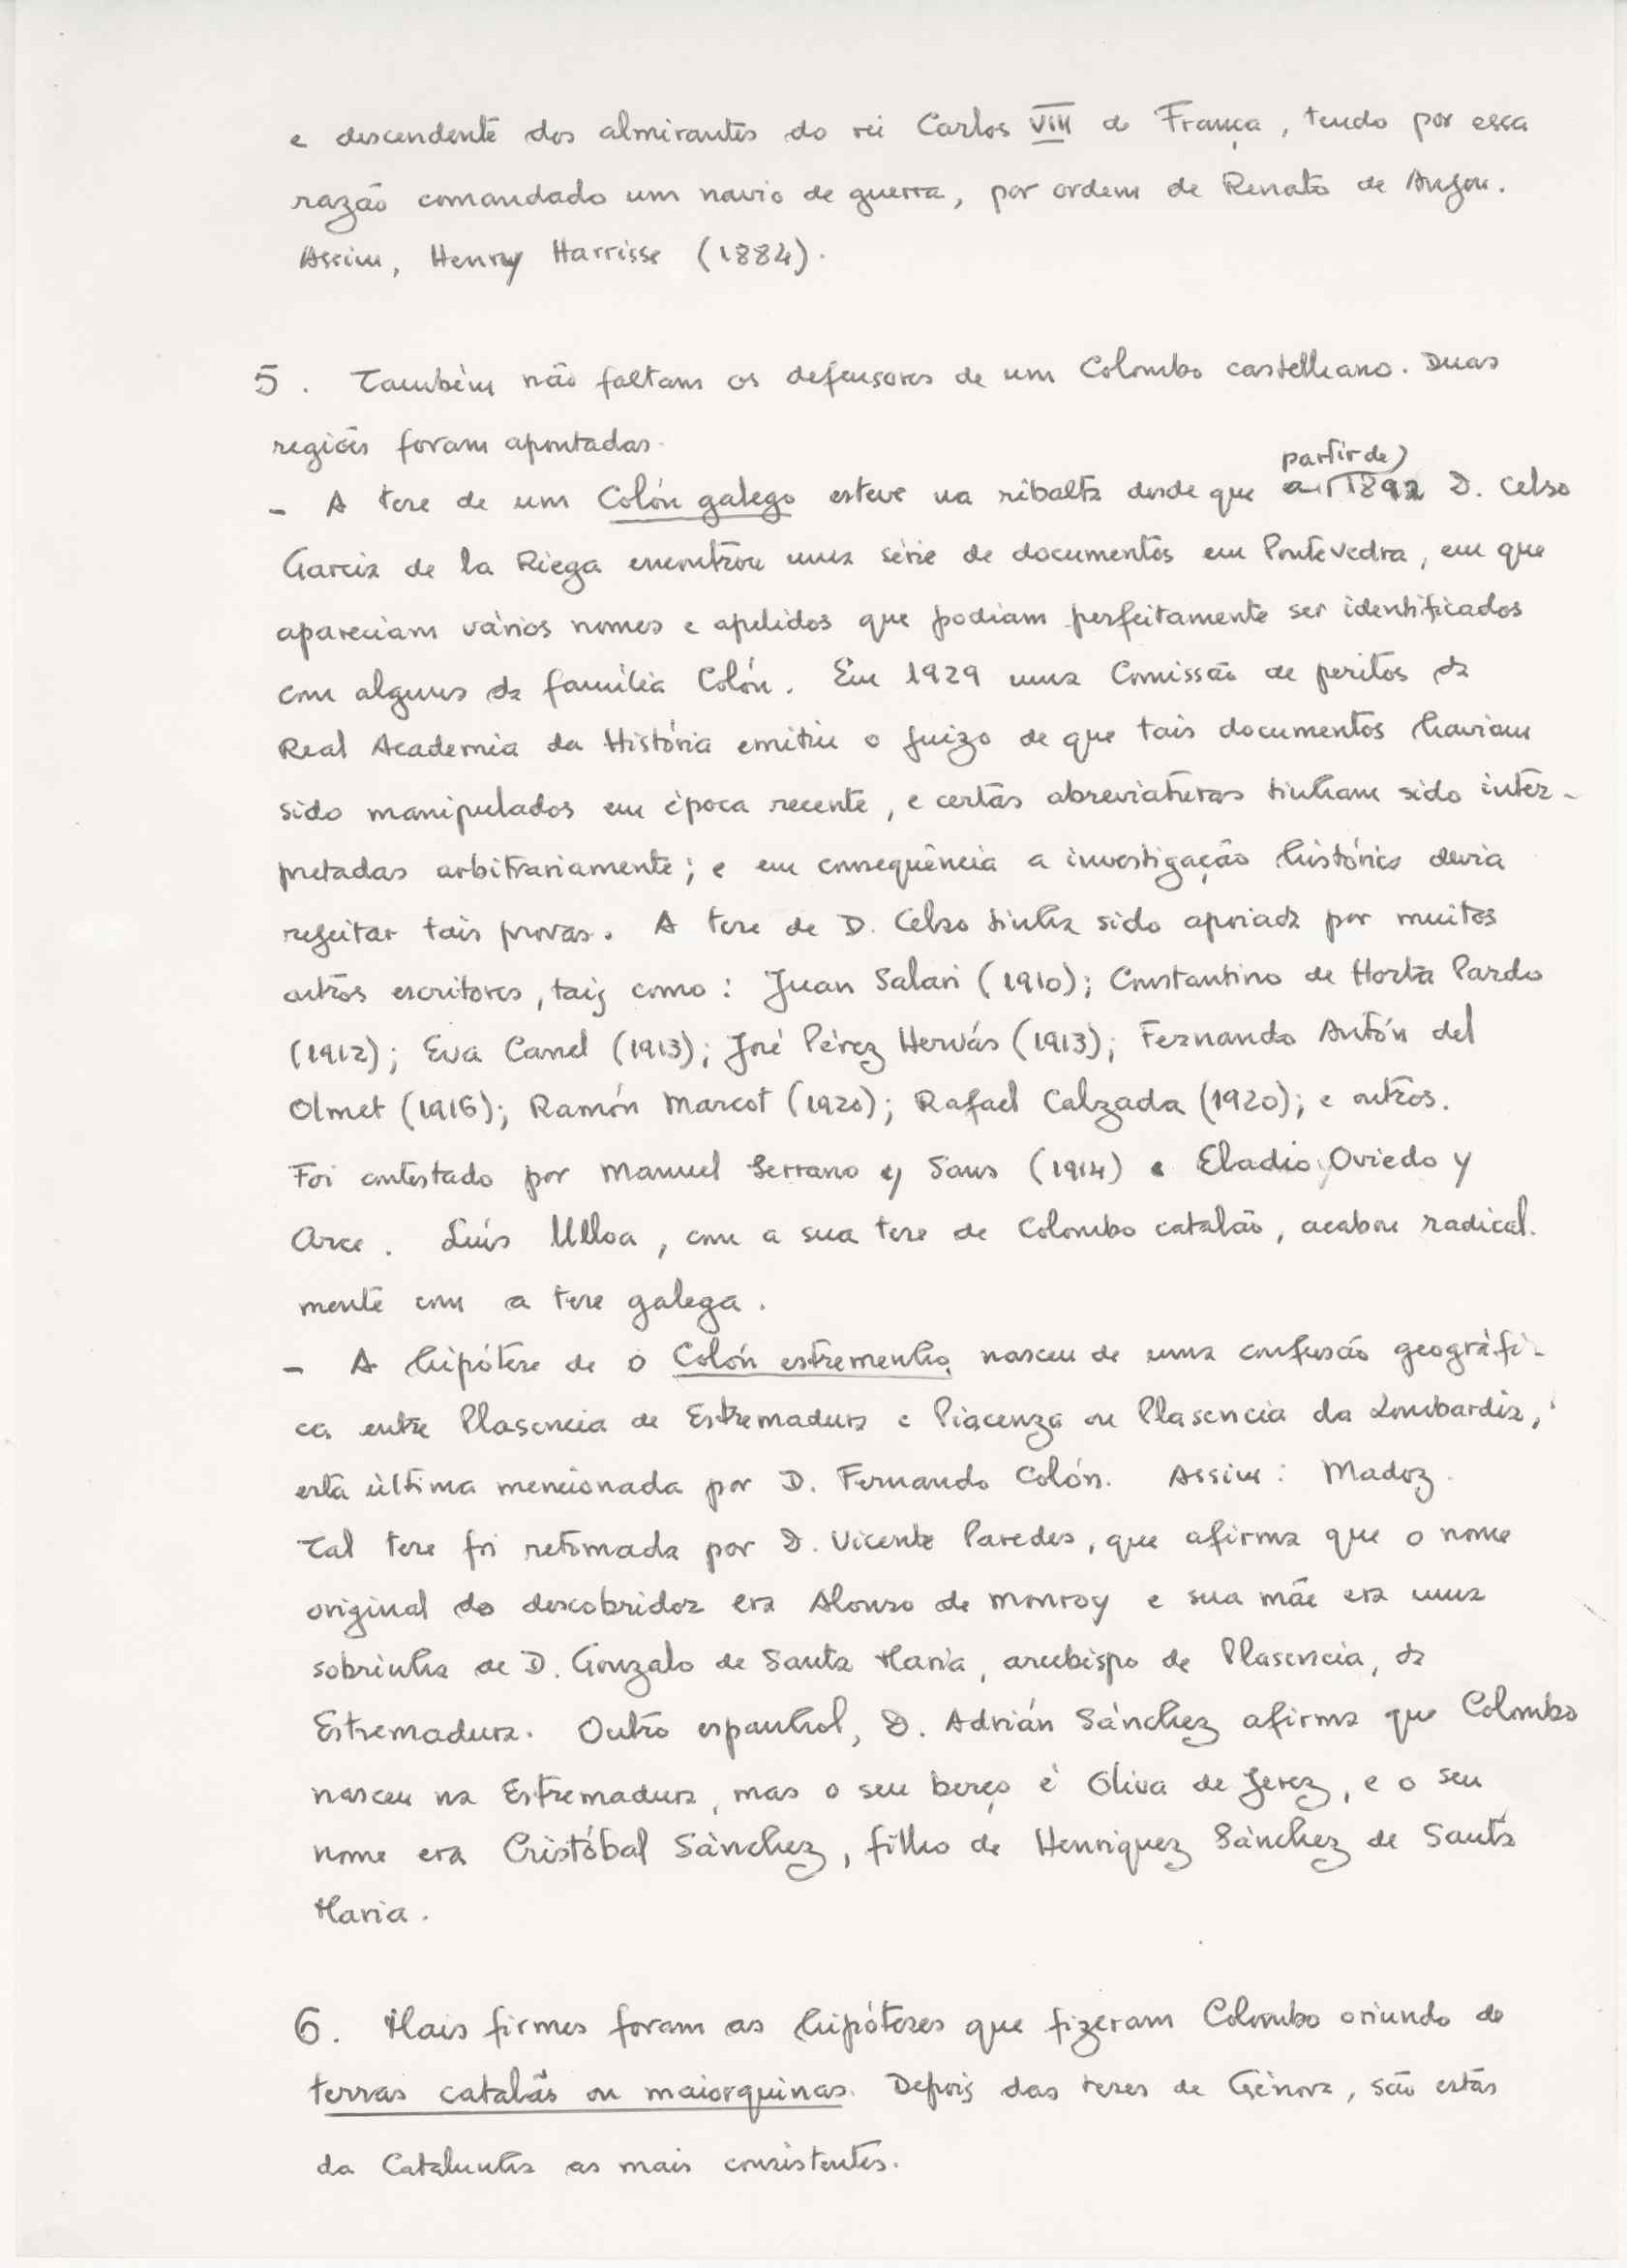 e descendente dos almirantes do rei Carlos VIII de França, tendo por essa
razão comandado um navio de guerra, por ordem de Renato de Anjou.
Assim, Henry Harrisse (1884).
5. Também não faltam os defensores de um Colombo castelhano. Duas
regiões foram apontadas.
partir de
- A tese de um Colón galego esteve na ribalta desde que a 1892 D. Celso
Garcia de la Riega encontrou uma série de documentos em Pontevedra, em que
apareciam vários nomes e apelidos que podiam perfeitamente ser identificados
com alguns da família Colón. Em 1929 uma Comissão de peritos da
Real Academia da História emitiu o juizo de que tais documentos haviam
sido manipulados em época recente, e certas abreviaturas tinham sido inter-
pretadas arbitrariamente; e em consequência a investigação histórica devia
rejeitar tais provas. A tese de D. Celso tinha sido apoiada por muitos
outros escritores, tais como: Juan Salari (1910); Constantino de Horta Pardo
(1912); Eva Canel (1913); José Pérez Hervás (1913); Fernando Antón del
Olmet (1916); Ramón Marcot (1920); Rafael Calzada (1920); e outros.
Foi contestado por Manuel Serrano y Sans (1914) e Eladio Oviedo y
Arce. Luís Ulloa, com a sua tese de Colombo catalão, acabou radical-
mente com a tese galega.
- A hipótese de o Colón estremenho, nasceu de uma confusão geográfi-
ca entre Plasencia de Estremadura e Piacenza ou Plasencia da Lombardia,
esta última mencionada por D. Fernando Colón. Assim: Madoz.
Tal tese foi retomada por D. Vicente Paredes, que afirma que o nome
original do descobridor era Alonso de Monroy e sua mãe era uma
sobrinha de D. Gonzalo de Santa Maria, arcebispo de Plasencia, da
Estremadura. Outro espanhol, D. Adrián Sánchez afirma que Colombo
nasceu na Estremadura, mas o seu berço é Oliva de Jerez, e o seu
nome era Cristóbal Sánchez, filho de Henriquez Sánchez de Santa
Maria.
6. Mais firmes foram as hipóteses que fizeram Colombo oriundo de
terras catalãs ou maiorquinas. Depois das teses de Génova, são estas
da Catalunha as mais consistentes.